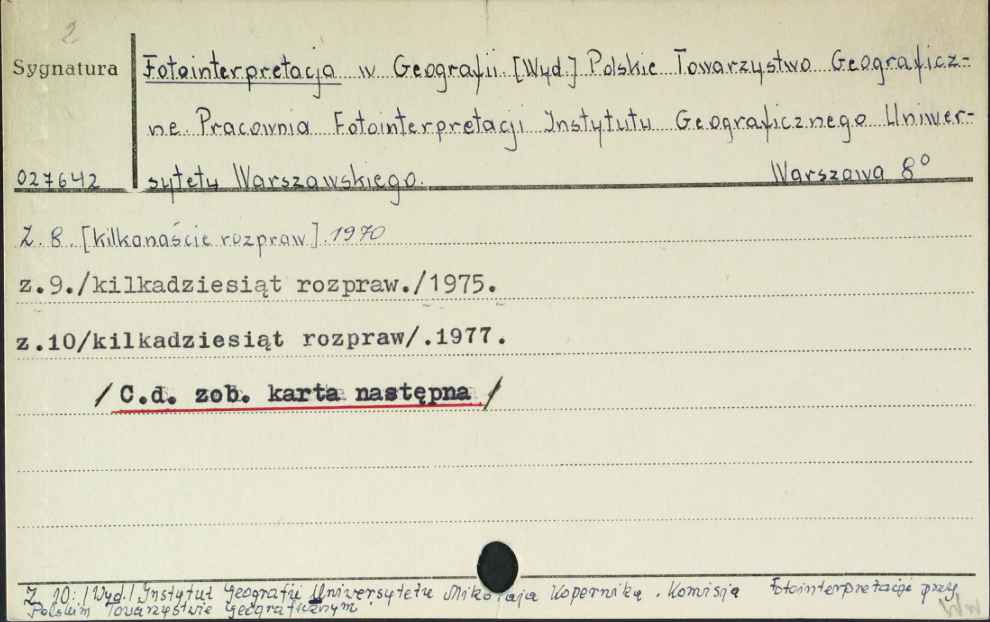 2
Sygnatura
Fotointerpretacja w Geografii [Wyd.] Polskie Towarzystwo Geograficz-
ne. Pracownia Fotointerpretacji Instytutu Geograficznego Uniwer-
027642
sytetu Warszawskiego. Warszawa 8°
Z. 8. [kilkanaście rozpraw]. 1970
z.9./kilkadziesiąt rozpraw./1975.
z.10/kilkadziesiąt rozpraw/.1977.
/C.d. zob. karta następna/
Z. 10: /Wyd./ Instytut Geografii Uniwersytetu Mikołaja Kopernika. Komisja Fotointerpretacji przy
Polskim Towarzystwie Geograficznym